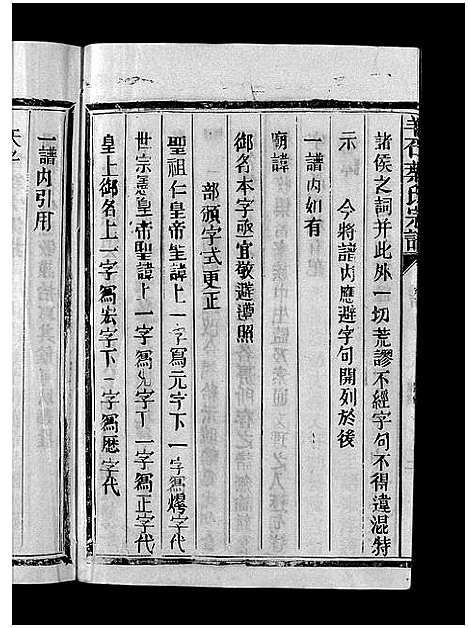 諸侯之詞并此外一切荒謬不經字句不得違混特
示 今將譜内應避字句開列於後
一譜内如有
廟諱
御名本字亟宜敬避遵照
部頒字式更正
聖祖仁皇帝聖諱上一字寫元字下一字寫燁字代
世宗憲皇帝聖諱上一字寫允字下一字寫正字代
皇上御名上一字寫宏字下一字寫歷字代
一譜内引用